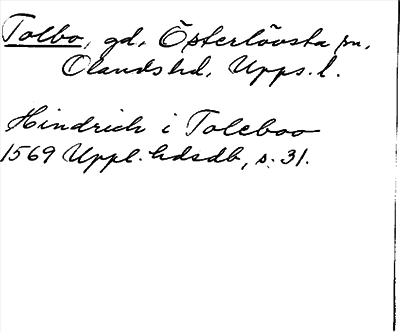 Tolbo, gd, Österlövsta sn,
Olands hd, Upps. l.
Hindrich i Toleboo
1569 Uppl. hdsdb, s. 31.